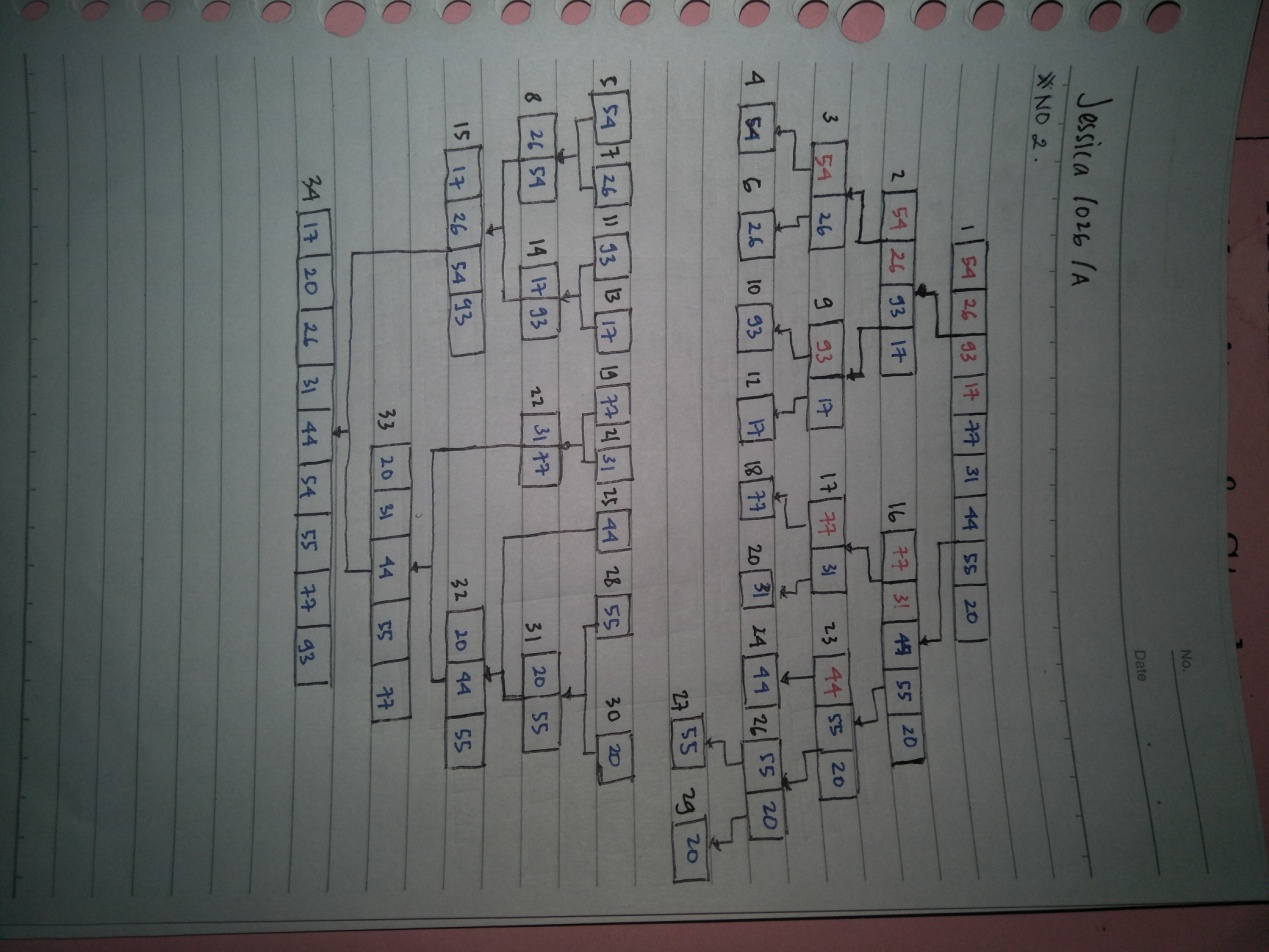 No.
Date
Jessica 1026 / A
*NO 2.
1 54 26 93 17 77 31 44 55 20
2 54 26 93 17 16 77 31 44 55 20
3 54 26 9 93 17 17 77 31 23 44 55 20
4 54 6 26 10 93 12 17 18 77 20 31 24 44 26 55 20
27 55 29 20
5 54 7 26 11 93 13 17 19 77 21 31 25 44 28 55 30 20
8 26 54 14 17 93 22 31 77 31 20 55
15 17 26 54 93 32 20 44 55
33 20 31 44 55 77
34 17 20 26 31 44 54 55 77 93